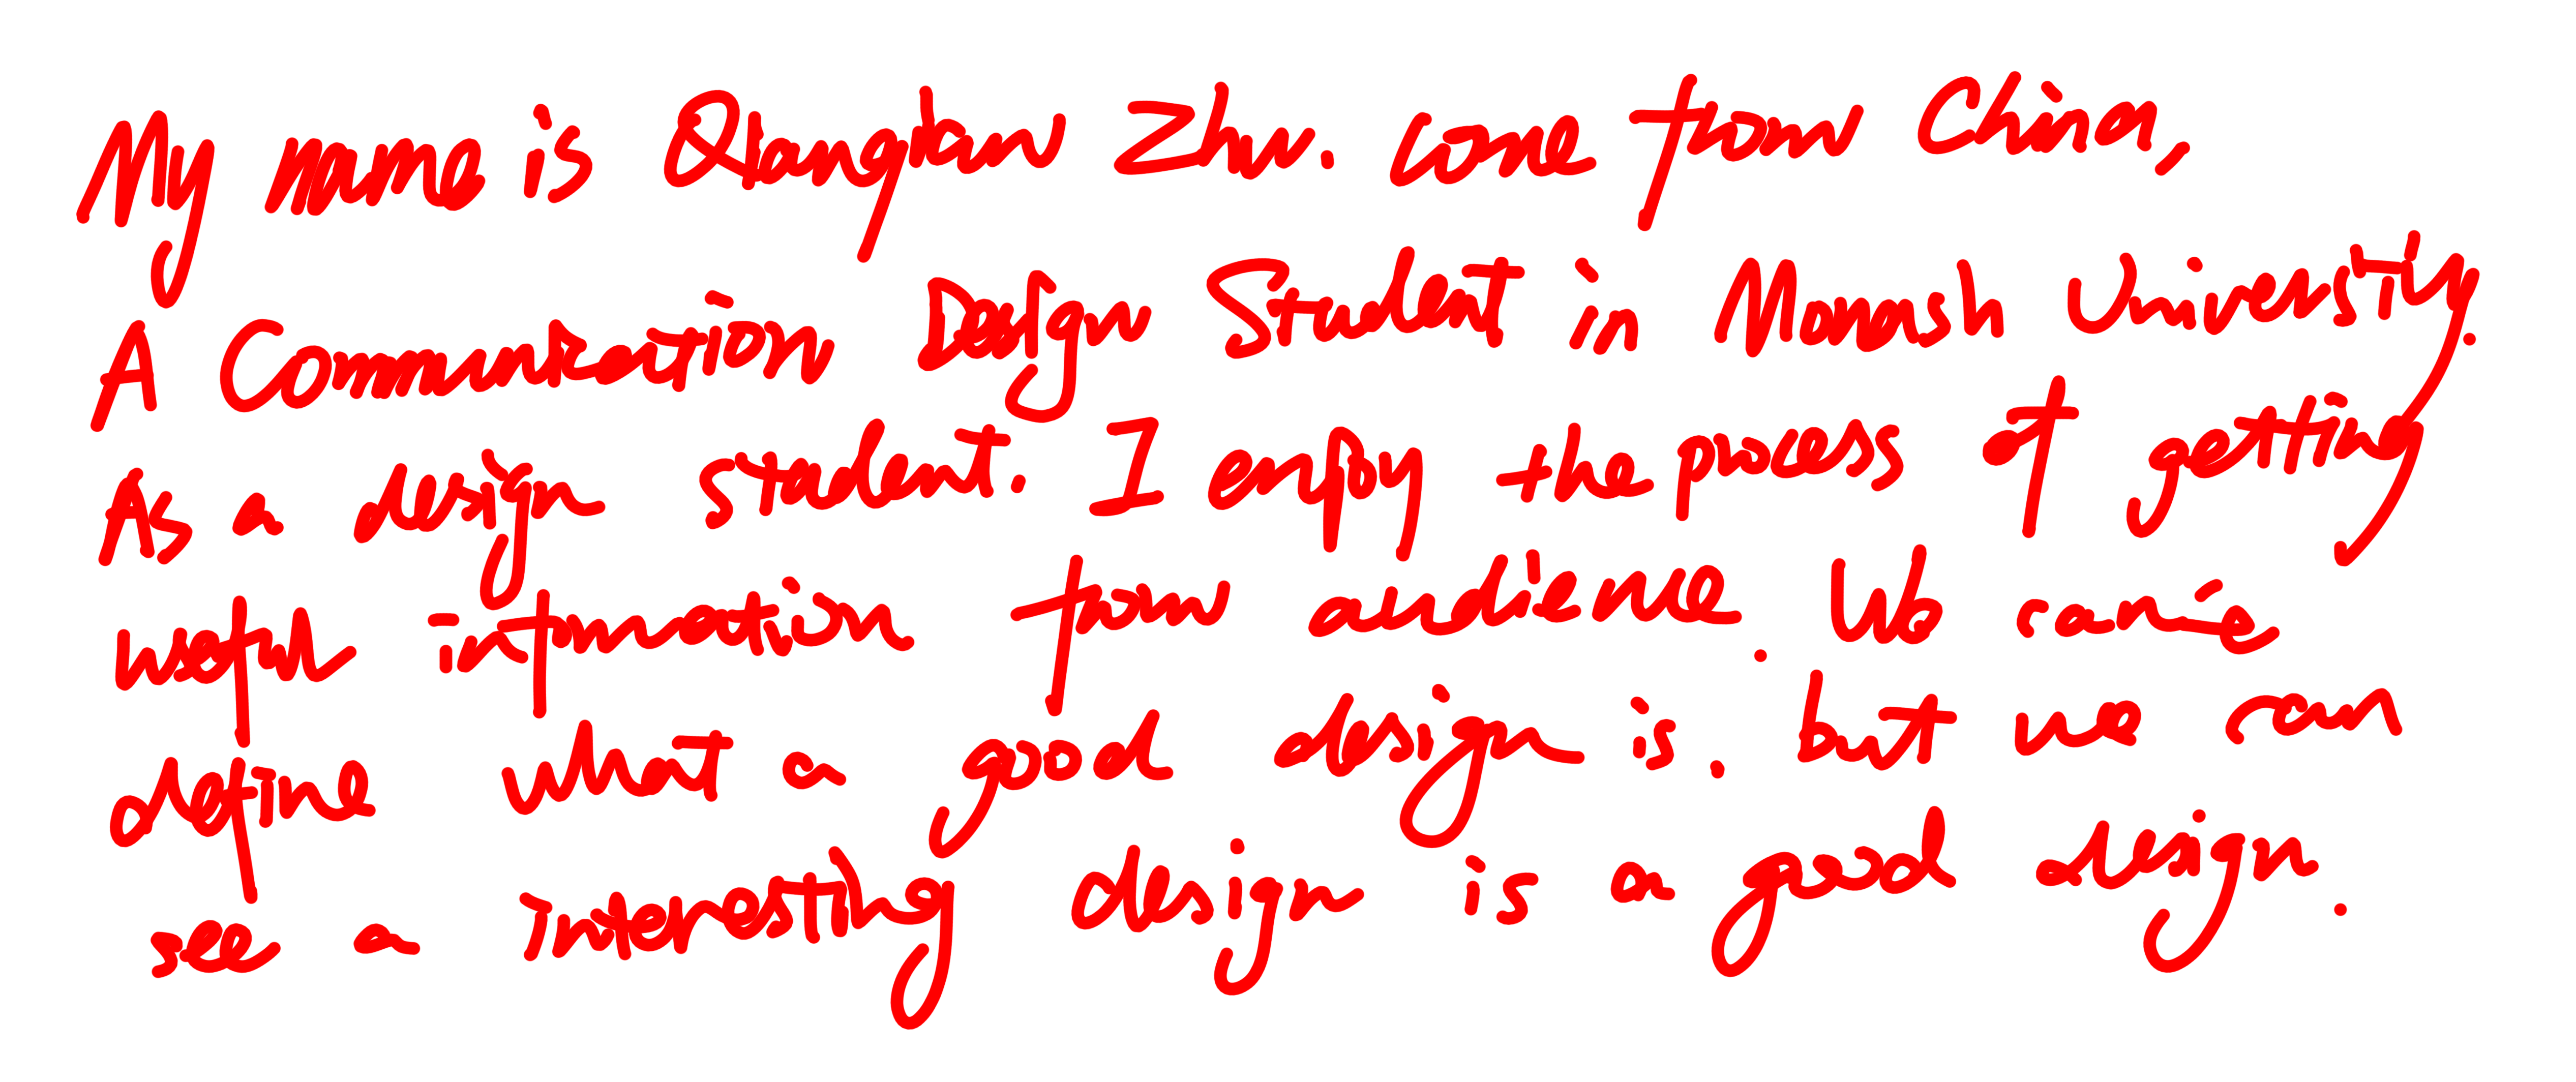 My name is Qianqian Zhu. come from China,
A Communication Design Student in Monash University.
As a design student. I enjoy the process of getting
useful information from audience. We can
define what a good design is. but we can
see a interesting design is a good design.